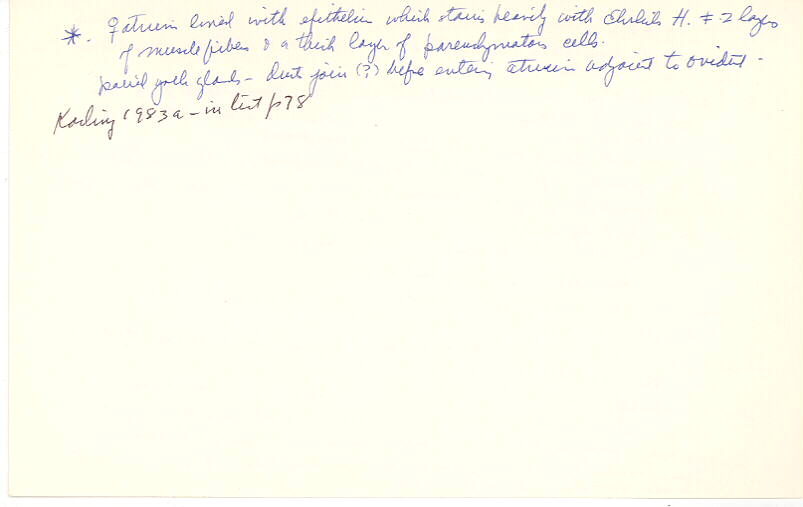 *. ♀ atrium lined with epithelium which stains heavily with Ehrlich's H. + 2 layers
of muscle fibers & a thick layer of parenchymatous cells.
paired yolk glands - ducts join (?) before entering atrium adjacent to oviduct.
Karling 1983a - in text p78